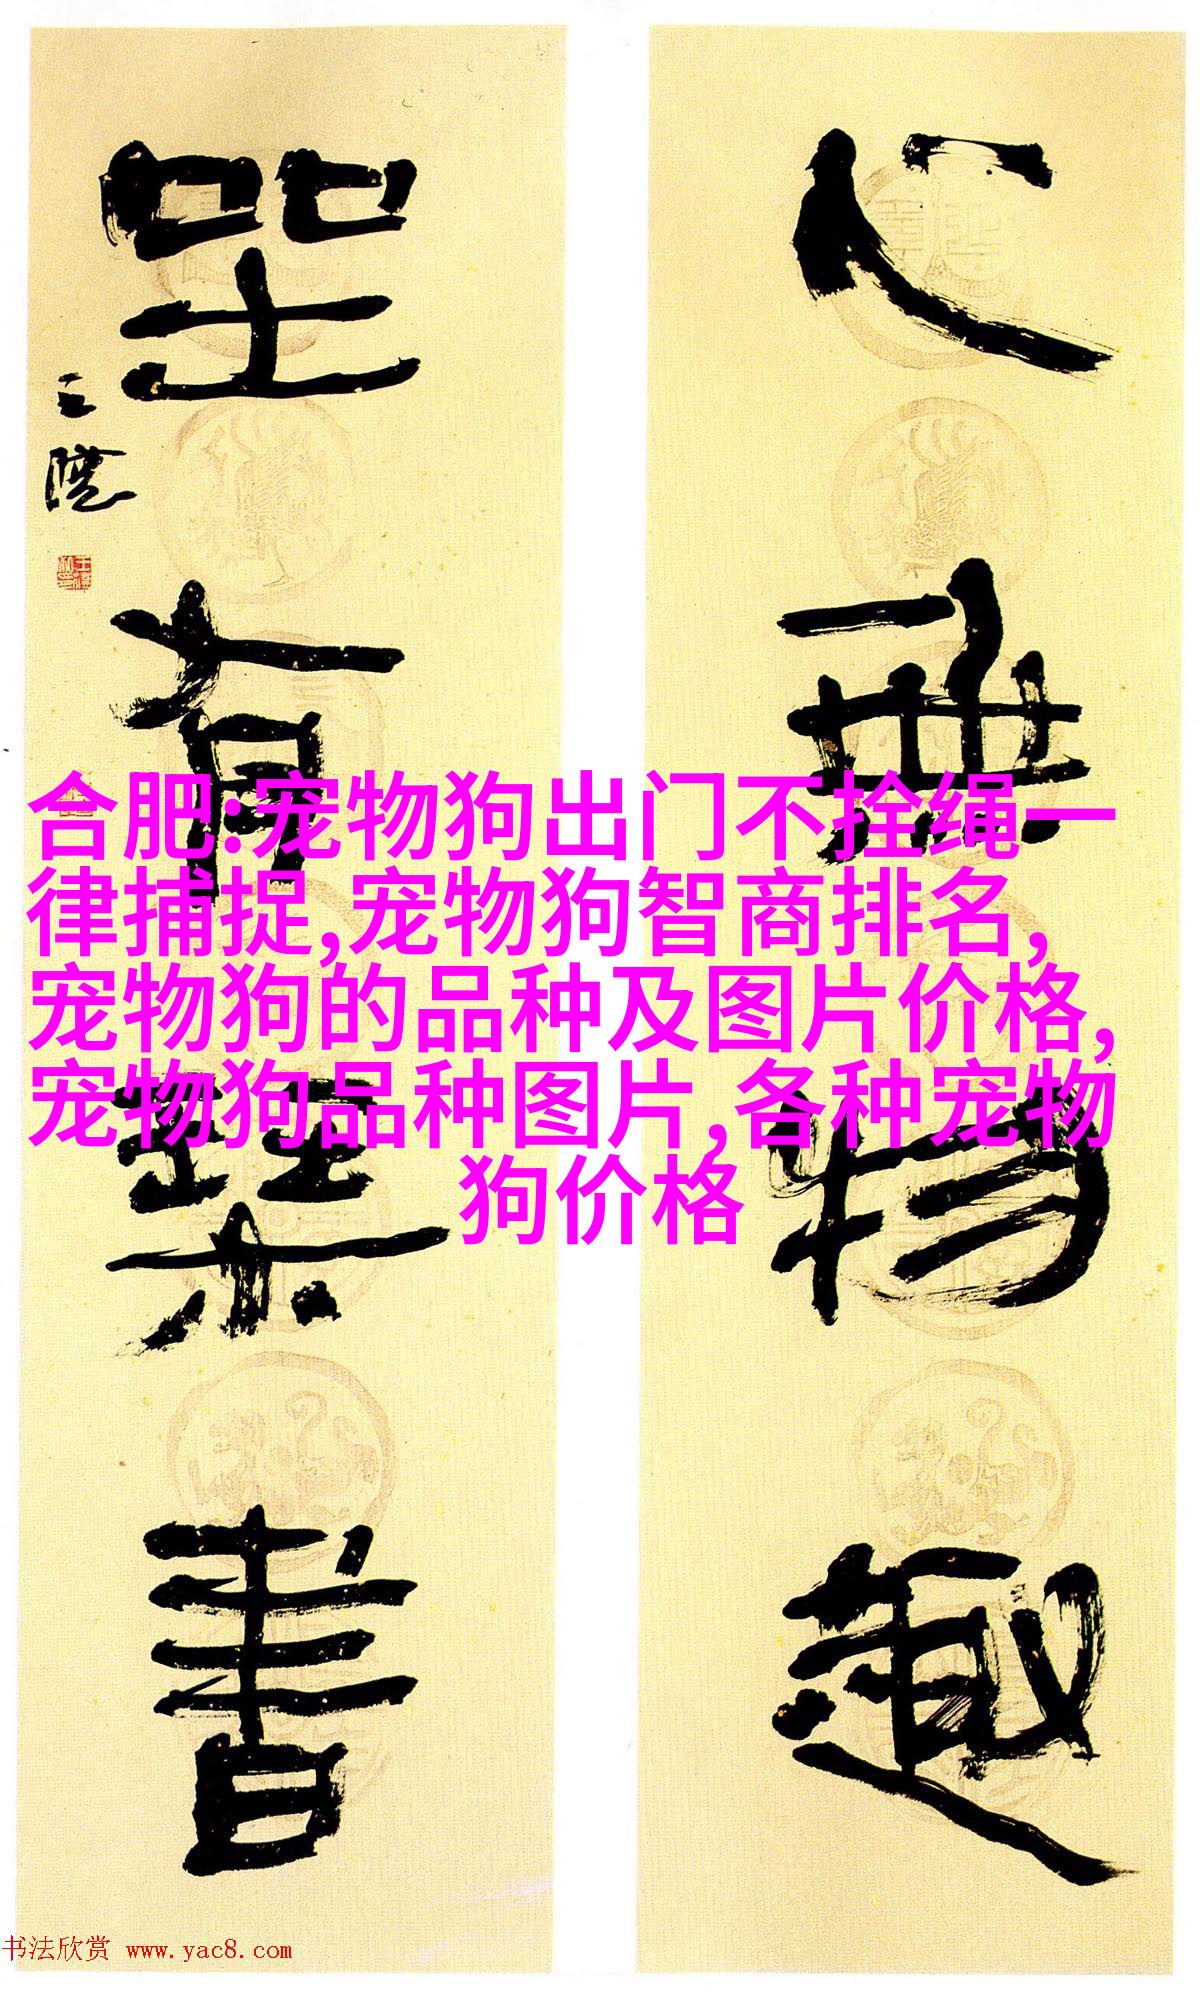 心無物趣
坐有琹書
合肥:宠物狗出门不拴绳一
律捕捉,宠物狗智商排名,
宠物狗的品种及图片价格,
宠物狗品种图片,各种宠物
狗价格
书法欣赏 www.yac8.com